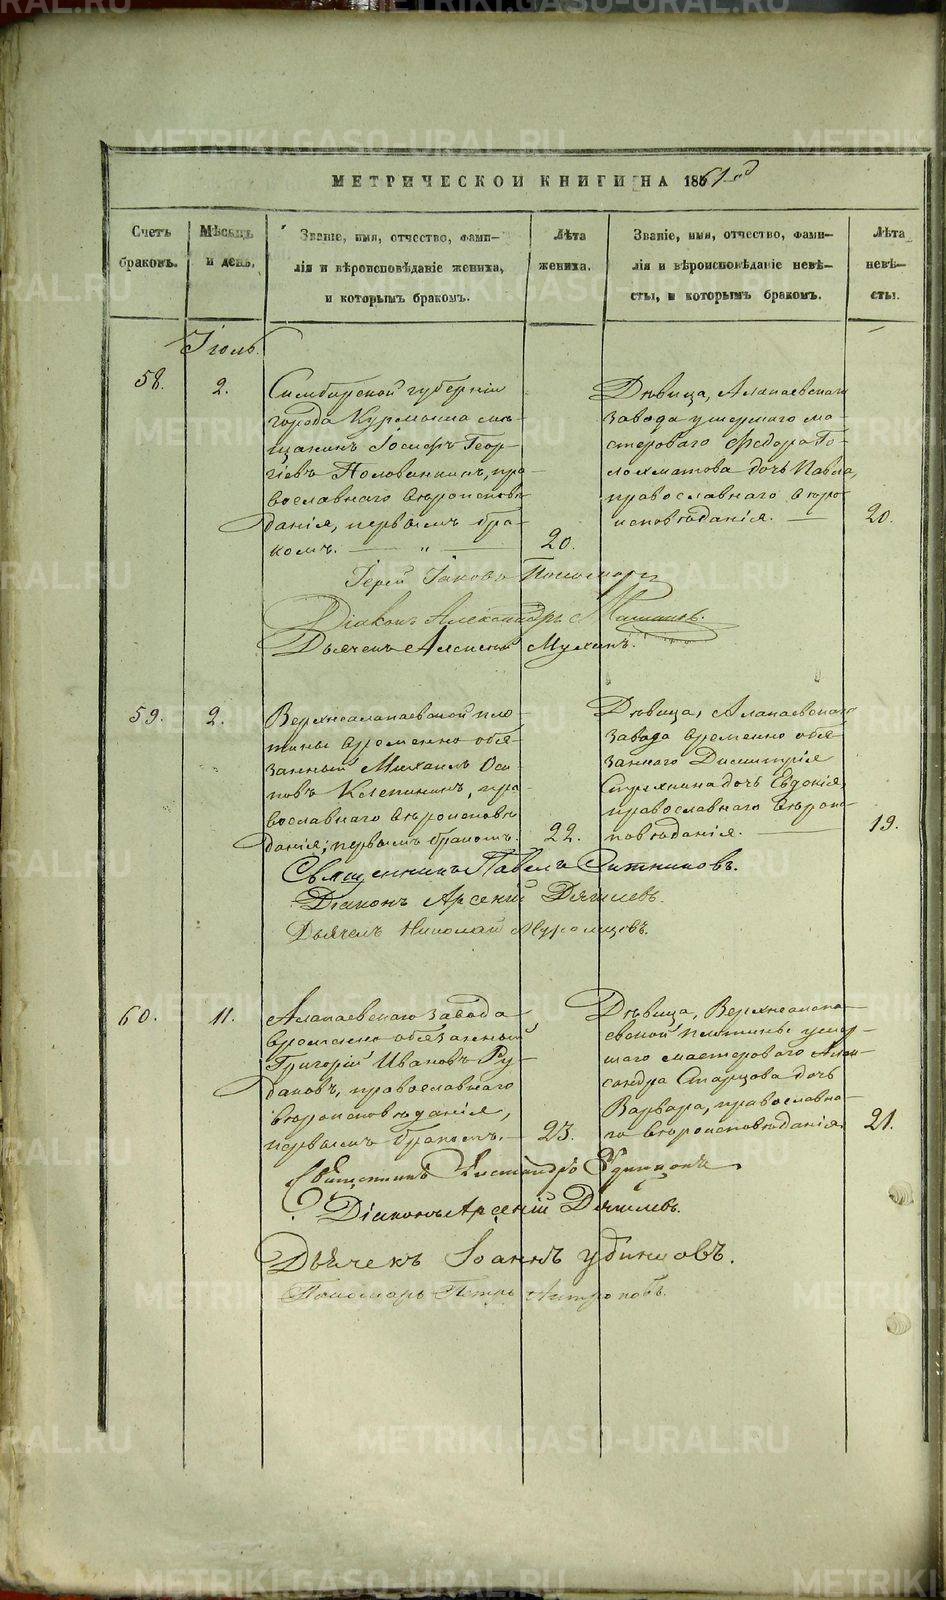 МЕТРИЧЕСКОЙ КНИГИ НА 1861 год
Счетъ
браковъ.
Мѣсяцъ
и день.
Званіе, имя, отчество, фами-
лія и вѣроисповѣданіе жениха,
и которымъ бракомъ.
Лѣта
жениха.
Званіе, имя, отчество, фами-
лія и вѣроисповѣданіе невѣ-
сты, и которымъ бракомъ.
Лѣта
невѣ-
сты.
Іюль.
58.
2.
Симбирской губерніи
города Курмыша мѣ-
щанинъ Іосифъ Геор-
гіевъ Половинкинъ, пра-
вославнаго вѣроисповѣ-
данія, первымъ бра-
комъ. — „ —
20.
Дѣвица, Алапаевскаго
завода умершаго ма-
стероваго Федора Го-
лохматова дочь Павла,
православнаго вѣро-
исповѣданія. —
20.
Іерей Іаковъ Пономаревъ
Діаконъ Александръ
Дьячекъ Алексѣй Мухинъ.
59.
2.
Верхнеалапаевской пло-
тины временно обя-
занный Михаилъ Оси-
повъ Клепининъ, пра-
вославнаго вѣроисповѣ-
данія, первымъ бракомъ.
22.
Дѣвица, Алапаевскаго
завода временно обя-
заннаго Димитрія
Стрихнина дочь Евдокія,
православнаго вѣроис-
повѣданія. —
19.
Священникъ Павелъ Ситниковъ.
Діаконъ Арсеній Дягилевъ.
Дьячекъ Николай Муромцовъ.
60.
11.
Алапаевскаго завода
временно обязанный
Григорій Ивановъ Ру-
даковъ, православнаго
вѣроисповѣданія,
первымъ бракомъ. —
23.
Дѣвица, Верхнеалапа-
евской плотины умер-
шаго мастероваго Алек-
сандра Старцова дочь
Варвара, православна-
го вѣроисповѣданія.
21.
Священникъ Александръ Удинцовъ
Діаконъ Арсеній Дягилевъ.
Дьячекъ Іоаннъ Удинцовъ.
Пономарь Петръ Антроповъ.
METRIKI.GASO-URAL.RU